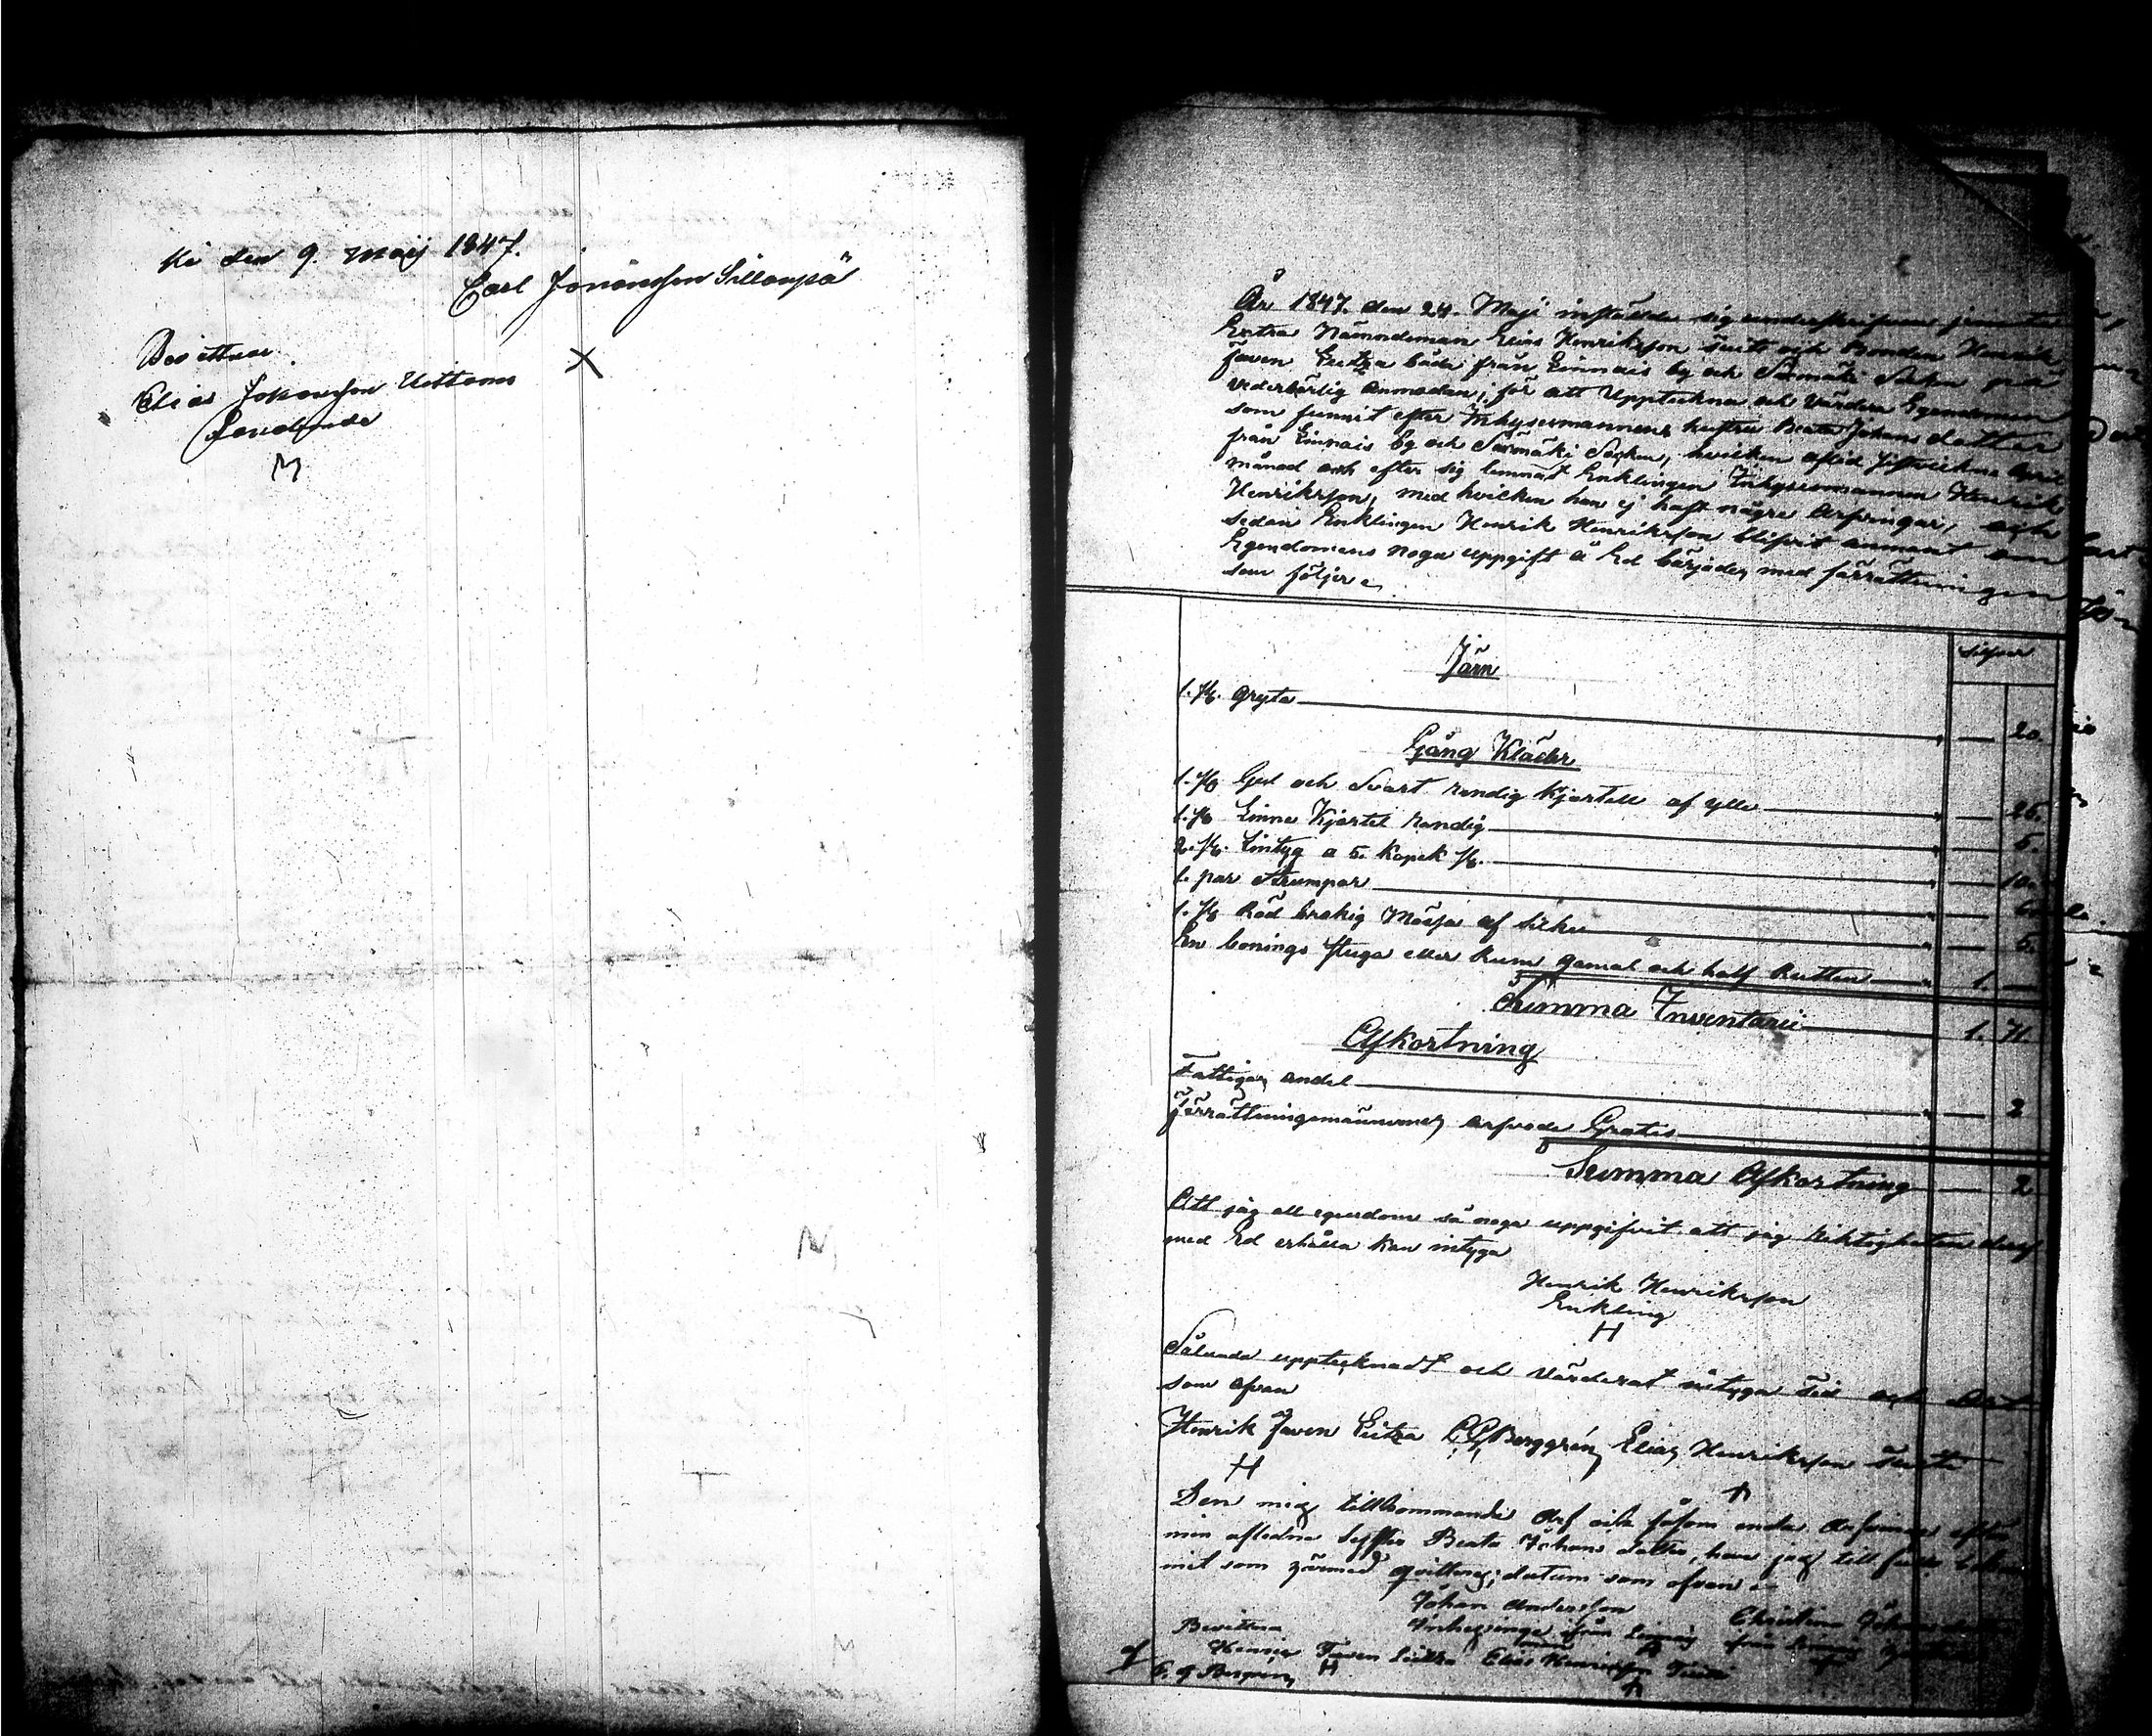 den 9. Maij 1847.
Carl Johansson Sillanpä
Bevittnar
Elias Johansson
M
År 1847. den 24. Maji instälde sig undertecknad jemte
Extra Nämndeman Elias Henriksson och Bonden Henrik
Javen både från Linnais by och Sarmäki Socken på
vederbörlig anmodan, för att Uppteckna och Värdera Egendomen
som funnit efter Inhysesmannens hustru Beata Johans dotter
från Linnais by och Sarmäki Socken, hvilken afled sistvickne April
månad och efter sig lemnat Enklingen Inhysesmannen Henrik
Henriksson, med hvilken hon ej haft några Arfvingar, och
sedan Enklingen Henrik Henriksson blifvit anmant om
Egendomens noga uppgift å Ed börjades med förrättningen
som följer
Silfver
Järn
1. st. gryta 20.
Gång Kläder
1. st Gul och Svart randig Kjortell af ylle 25.
1. st Linne Kjortel randig 5.
2. st. Lintyg a 5. Kopek st. 10.
1. par Strumpor 6
1. st Röd brokig Mössa af silke 5.
En bonings stuga eller Rum gamal och half Rutten 1. —
Summa Inventarii 1. 71.
Afkortning
Fattigas andel 2
Förrättningsmännernes arfvode Gratis
Summa Afkortning 2
Att jag all egendom så noga uppgifvit att jag Riktigheten deraf
med Ed erhålla kan intyga
Henrik Henriksson
Enkling
H
Sålunda upptecknadt och Värderat intyga tid och Ort
som ofvan
Henrik Javen Berggrén Elias Henriksson
H
Den mig tillkommande Arf såsom enda Arfvinge efter
min aflidne Beata Johans dotter, har jag till
mit som härmed qvitteras; datum som ofvan
Johan Andersson Christina
från från
Bevittna
Javen Elias Henriksson
H